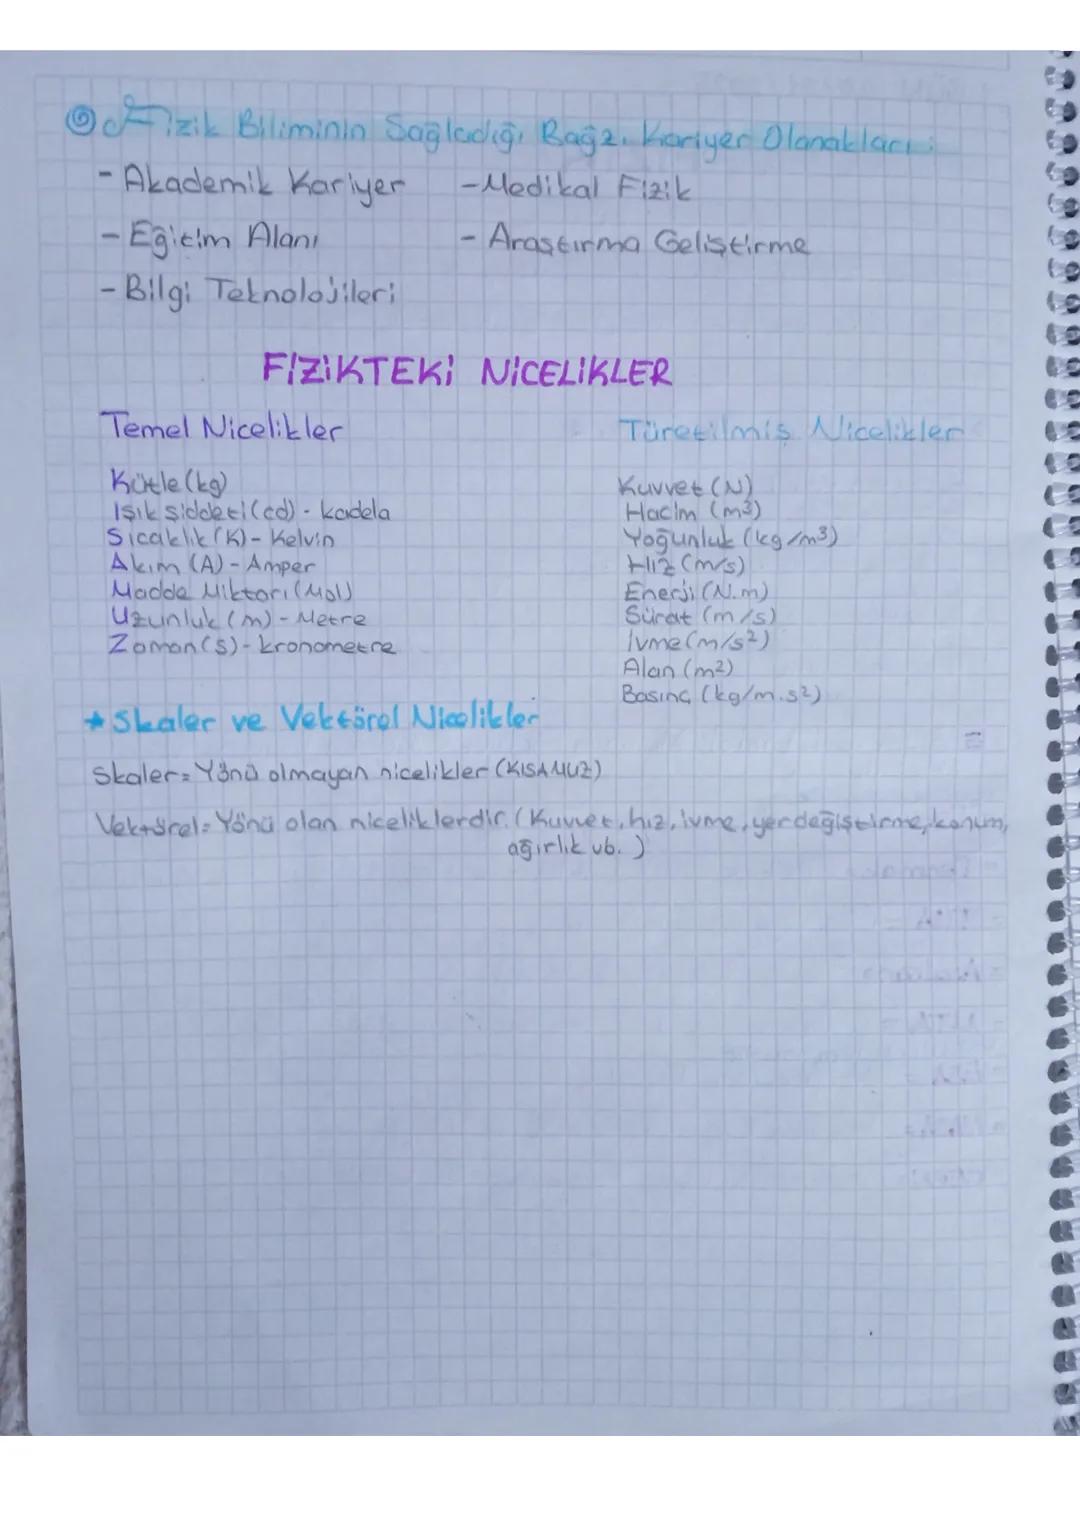 Fizik Biliminin Sağladığı Bağzı Kariyer Olanakları:
- Akademik Kariyer - Medikal Fizik
- Eğitim Alanı - Araştırma Geliştirme
- Bilgi Teknolojileri
FİZİKTEKİ NİCELİKLER
Temel Nicelikler
Kütle (kg)
Işık şiddeti (cd) - kadela
Sıcaklık (K) - Kelvin
Akım (A) - Amper
Madde Miktarı (Mol)
Uzunluk (m) - Metre
Zaman (s) - kronometre
Türetilmiş Nicelikler
Kuvvet (N)
Hacim (m³)
Yoğunluk (kg/m³)
Hız (m/s)
Enerji (N.m)
Sürat (m/s)
İvme (m/s²)
Alan (m²)
Basınç (kg/m.s²)
★ Skaler ve Vektörel Nicelikler
Skaler = Yönü olmayan nicelikler (KISAMUZ)
Vektörel = Yönü olan niceliklerdir. (Kuvvet, hız, ivme, yerdeğiştirme, konum,
ağırlık vb. )